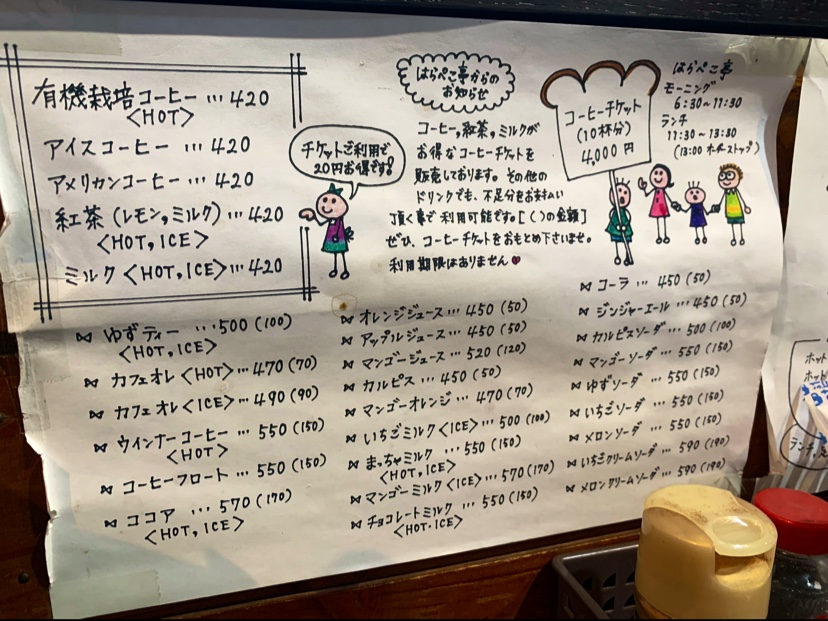 有機栽培コーヒー…420
<HOT>
アイスコーヒー…420
アメリカンコーヒー…420
紅茶(レモン,ミルク)…420
<HOT,ICE>
ミルク<HOT,ICE>…420
チケットご利用で
20円お得です!
はらぺこ亭からの
お知らせ
コーヒー,紅茶,ミルクが
お得なコーヒーチケットを
販売しております。その他の
ドリンクでも、不足分をお支払い
頂く事で利用可能です。[( )の金額]
ぜひ、コーヒーチケットをおもとめ下さいませ。
利用期限はありません♥
コーヒーチケット
(10杯分)
4,000円
はらぺこ亭
モーニング
6:30~11:30
ランチ
11:30~13:30
(13:00 オーダーストップ)
ゆずティー…500(100)
<HOT,ICE>
カフェオレ<HOT>…470(70)
カフェオレ<ICE>…490(90)
ウインナーコーヒー…550(150)
<HOT>
コーヒーフロート…550(150)
ココア…570(170)
<HOT,ICE>
オレンジジュース…450(50)
アップルジュース…450(50)
マンゴージュース…520(120)
カルピス…450(50)
マンゴーオレンジ…470(70)
いちごミルク<ICE>…500(100)
まっちゃミルク…550(150)
<HOT,ICE>
マンゴーミルク<ICE>…570(170)
チョコレートミルク…550(150)
<HOT・ICE>
コーラ…450(50)
ジンジャーエール…450(50)
カルピスソーダ…500(100)
マンゴーソーダ…550(150)
ゆずソーダ…550(150)
いちごソーダ…550(150)
メロンソーダ…550(150)
いちごクリームソーダ…590(190)
メロンクリームソーダ…590(190)
ホット
ホット
ランチ